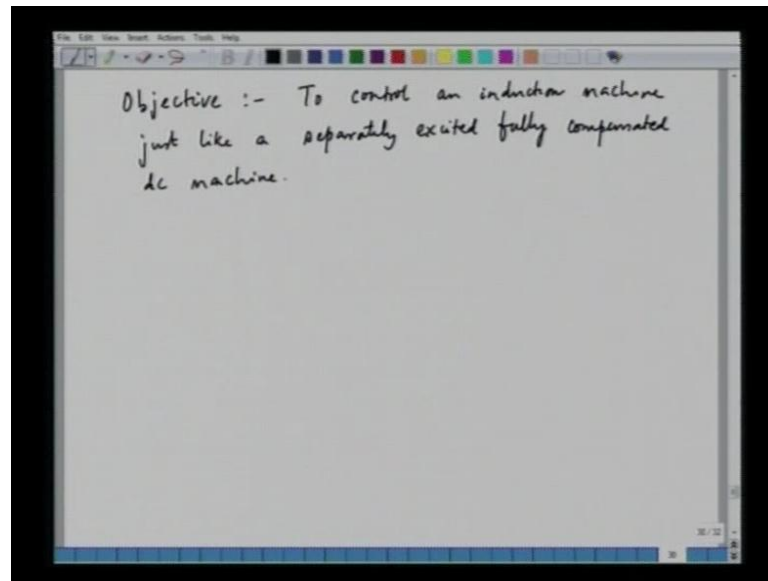 File Edit View Insert Actions Tools Help
Objective :- To control an induction machine
just like a separately excited fully compensated
dc machine.